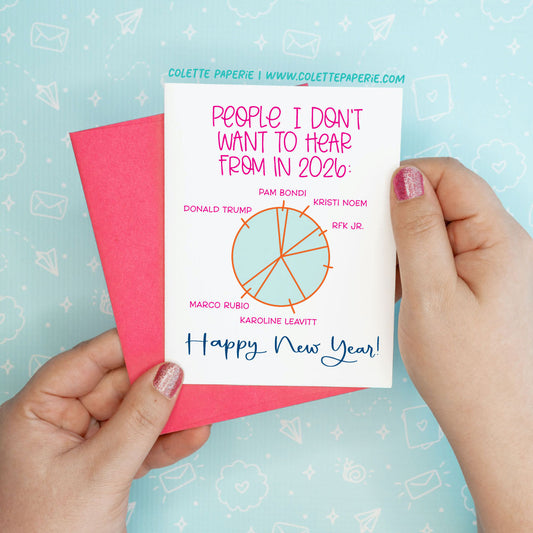 COLETTE PAPERIE | WWW.COLETTEPAPERIE.COM
PEOPLE I DON'T
WANT TO HEAR
FROM IN 2026:
PAM BONDI
KRISTI NOEM
DONALD TRUMP
RFK JR.
MARCO RUBIO
KAROLINE LEAVITT
Happy New Year!